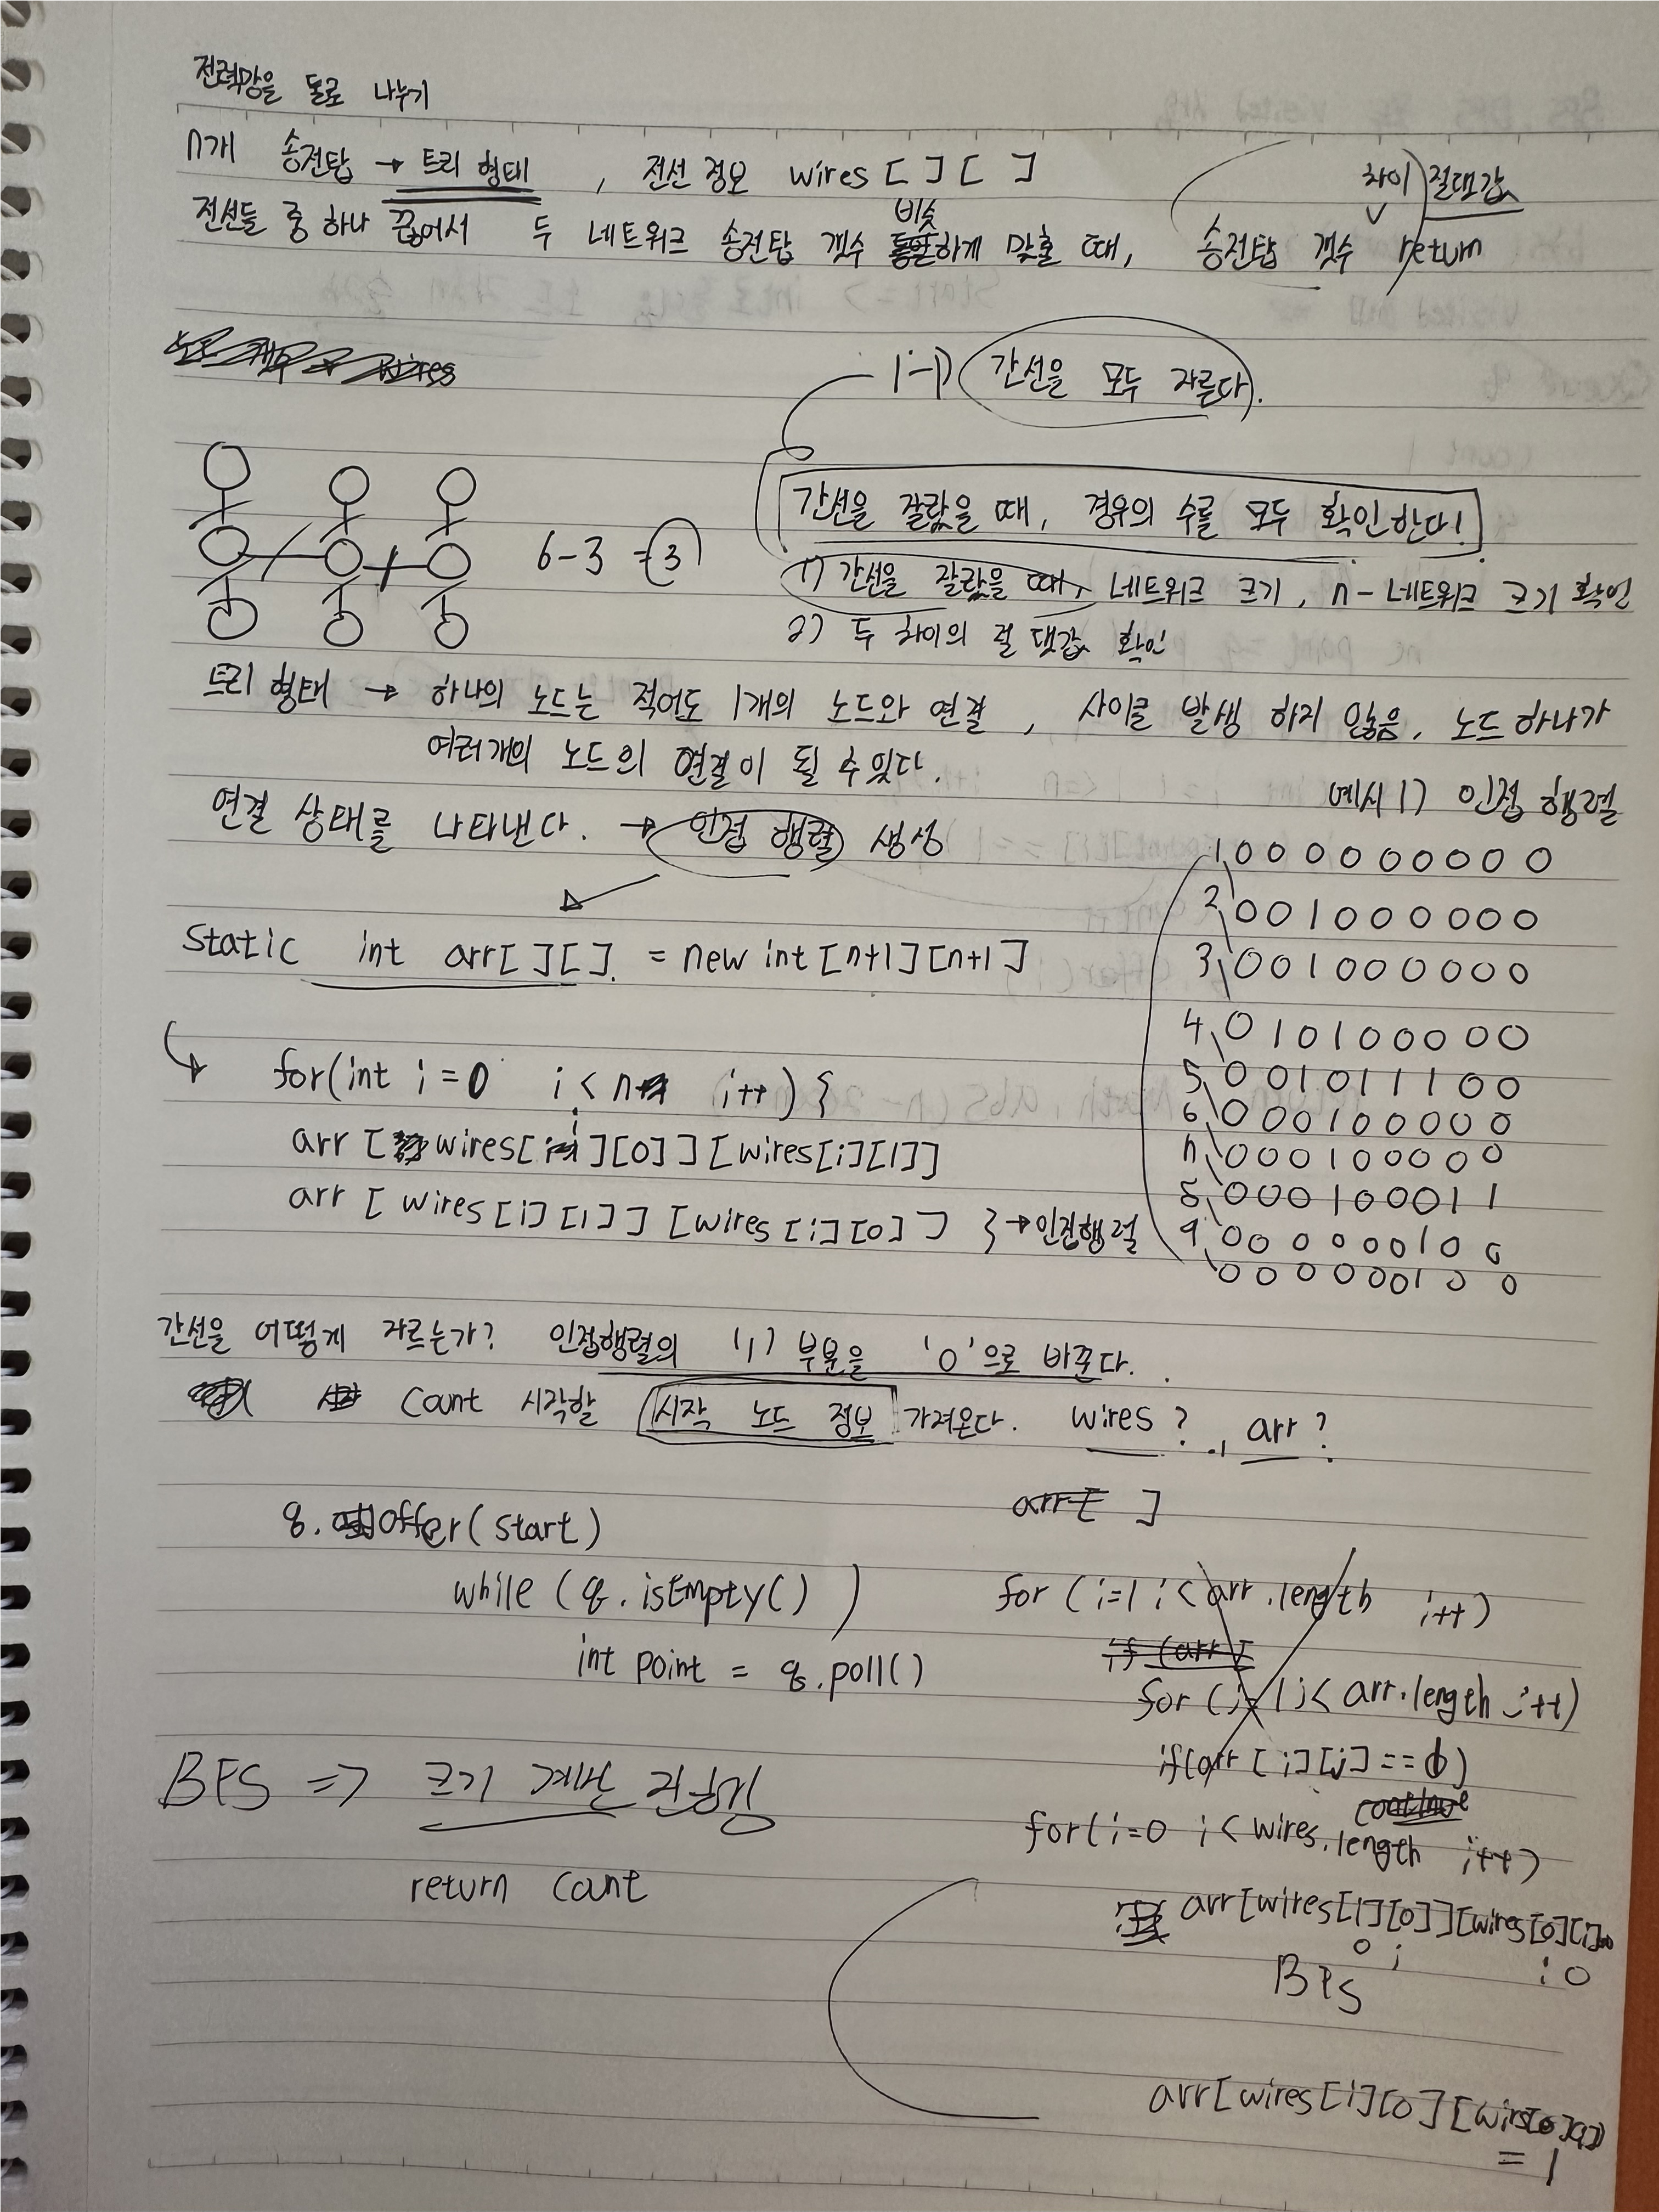 전력망을 둘로 나누기
n개 송전탑 → 트리 형태 , 전선 정보 wires [ ] [ ]
차이 절댓값
전선들 중 하나 끊어서 두 네트워크 송전탑 갯수 비슷하게 맞출 때, 송전탑 갯수 return
wires
1-1) 간선을 모두 자른다.
간선을 잘랐을 때, 경우의 수를 모두 확인한다!
6-3 = 3
1) 간선을 잘랐을 때, 네트워크 크기, n-네트워크 크기 확인
2) 두 차이의 절댓값 확인
트리 형태 → 하나의 노드는 적어도 1개의 노드와 연결 , 사이클 발생 하지 않음, 노드 하나가
여러개의 노드의 연결이 될 수 있다.
연결 상태를 나타낸다. → 인접 행렬 생성
예시 1) 인접 행렬
1 0 0 0 0 0 0 0 0 0
2 0 0 1 0 0 0 0 0 0
3 0 0 1 0 0 0 0 0 0
4 0 1 0 1 0 0 0 0 0
5 0 0 1 0 1 1 1 0 0
6 0 0 0 1 0 0 0 0 0
7 0 0 0 1 0 0 0 0 0
8 0 0 0 1 0 0 0 1 1
9 0 0 0 0 0 0 1 0 0
0 0 0 0 0 0 1 0 0
static int arr[][] = new int [n+1][n+1]
for(int i=0 i<n i++) {
arr [wires[i][0]][wires[i][1]]
arr [wires[i][1]] [wires[i][0]] } → 인접행렬
간선을 어떻게 자르는가? 인접행렬의 '1' 부분을 '0'으로 바꾼다.
count 시작할 시작 노드 정보 가져온다. wires ? , arr ?
arr[ ]
q.offer(start)
while (q.isEmpty() )
int point = q.poll()
for (i=1 i< arr.length i++)
if (arr [
for (j=1 j< arr.length j++)
if(arr [i][j] == 0)
continue
BFS => 크기 계산 진행
return count
for(i=0 i< wires.length i++)
arr[wires[1][0]][wires[0][i]]
0 i
i 0
BFS
arr[wires[i][0]
= 1